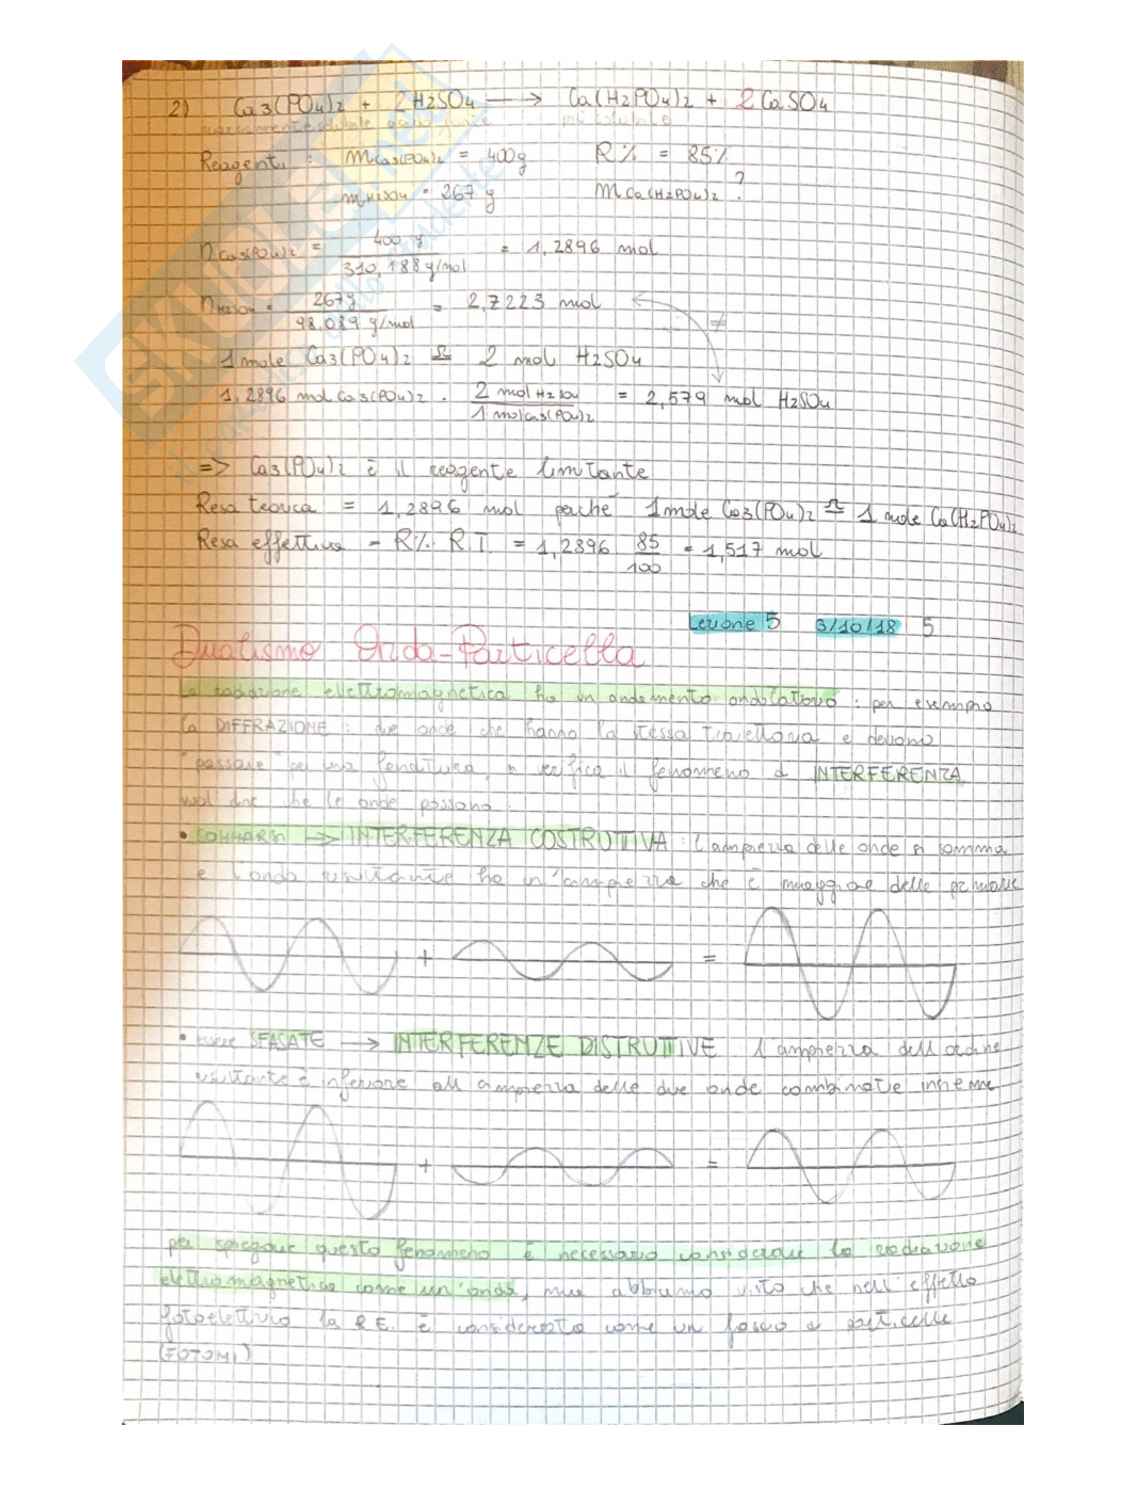 2) Ca3(PO4)2 + 2H2SO4 → Ca(H2PO4)2 + 2CaSO4
Reagenti : mCa3(PO4)2 = 400g R% = 85%
mH2SO4 = 267 g mCa(H2PO4)2 ?
nCa3(PO4)2 = 400 g / 310,188 g/mol = 1,2896 mol
nH2SO4 = 267g / 98,089 g/mol = 2,7223 mol
≠
1 mole Ca3(PO4)2 ≙ 2 mol H2SO4
1,2896 mol Ca3(PO4)2 . 2 mol H2SO4 / 1 mol Ca3(PO4)2 = 2,579 mol H2SO4
=> Ca3(PO4)2 è il reagente limitante
Resa teorica = 1,2896 mol perché 1 mole Ca3(PO4)2 ≙ 1 mole Ca(H2PO4)2
Resa effettiva = R% R.T. = 1,2896 85/100 = 1,517 mol
Lezione 5 3/10/18 5
Dualismo Onda-Particella
La radiazione elettromagnetica ha un andamento ondulatorio : per esempio
la DIFFRAZIONE : due onde che hanno la stessa traiettoria e devono
"passare" per una fenditura, si verifica il fenomeno di INTERFERENZA
vuol dire che le onde possono :
• SOMMARSI → INTERFERENZA COSTRUTTIVA : l'ampiezza delle onde si somma
e l'onda risultante ha un'ampiezza che è maggiore delle primarie
+ =
• essere SFASATE → INTERFERENZE DISTRUTTIVE l'ampiezza dell'ordine
risultante è inferiore all'ampiezza delle due onde combinate insieme
+ =
per spiegare questo fenomeno è necessario considerare la radiazione
elettromagnetica come un'onda, ma abbiamo visto che nell'effetto
fotoelettrico la R.E. è considerata come un fascio di particelle
(FOTONI)